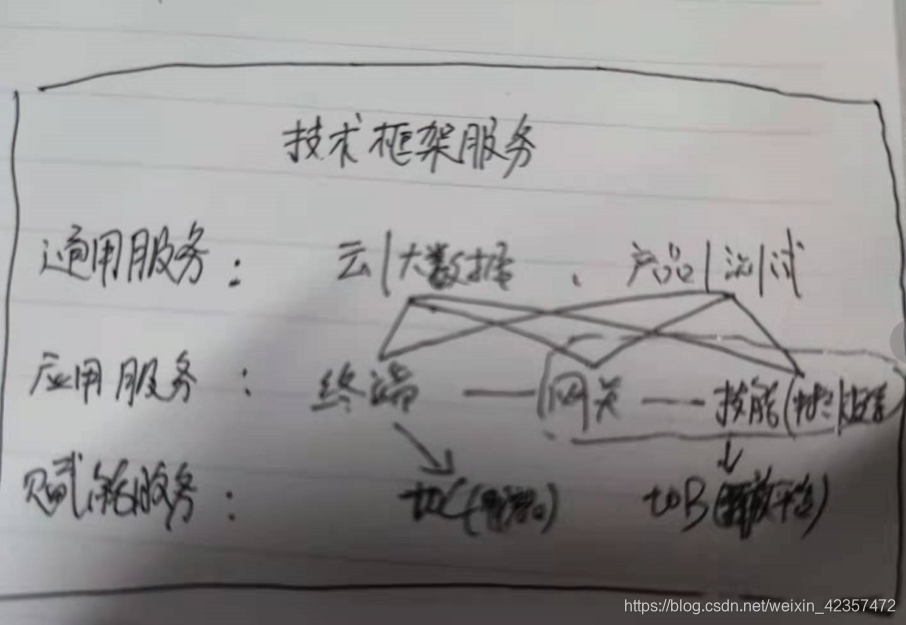 技术框架服务
通用服务： 云|大数据 、 产品|测试
应用服务： 终端 — 网关 — 技能(
赋能服务： toC( toB(开放平台)
https://blog.csdn.net/weixin_42357472